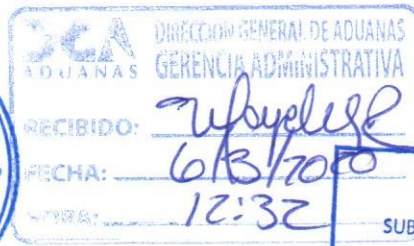 DGA
ADUANAS
DIRECCION GENERAL DE ADUANAS
GERENCIA ADMINISTRATIVA
RECIBIDO:
FECHA: 6/3/2020
HORA: 12:32
SUB